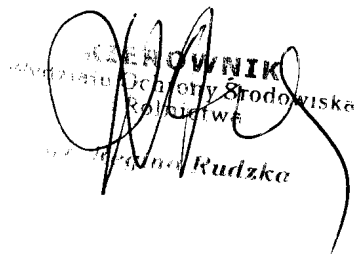 KIEROWNIK
Wydziału Ochrony Środowiska
Rolnictwa
Regina Rudzka